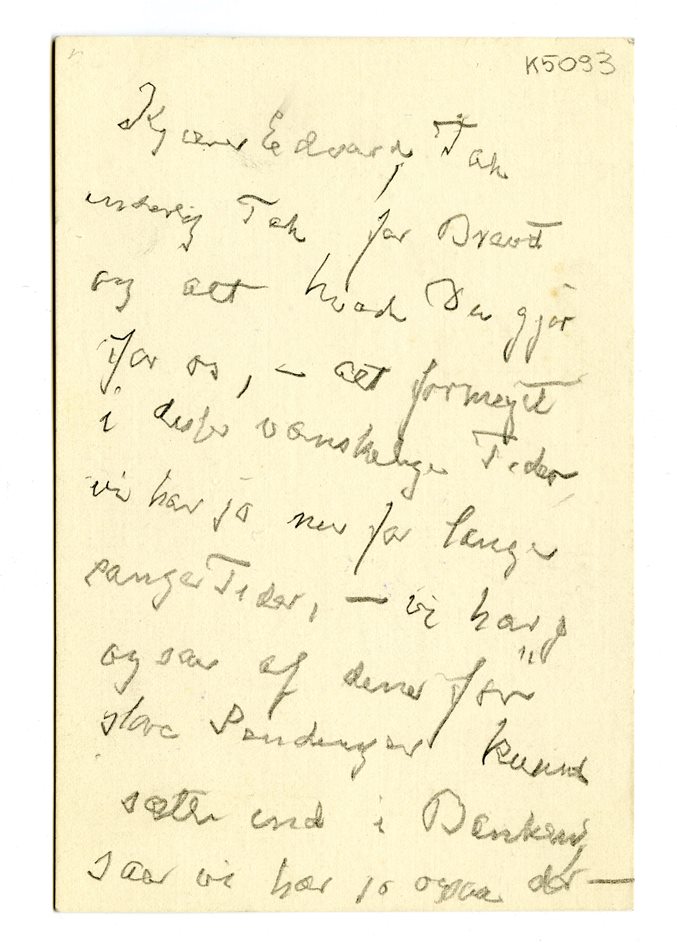 K5093
Kjære Edvard, Tak
inderlig Tak for Brevet
og alt hvad Du gjør
for os, – alt formeget
i disse vanskelige Tider
vi har jo nu for lange
Tider, – vi har jo
ogsaa af dine før
store Sendinger kunnet
sætte ind i Banken,
saa vi har jo ogsaa der –